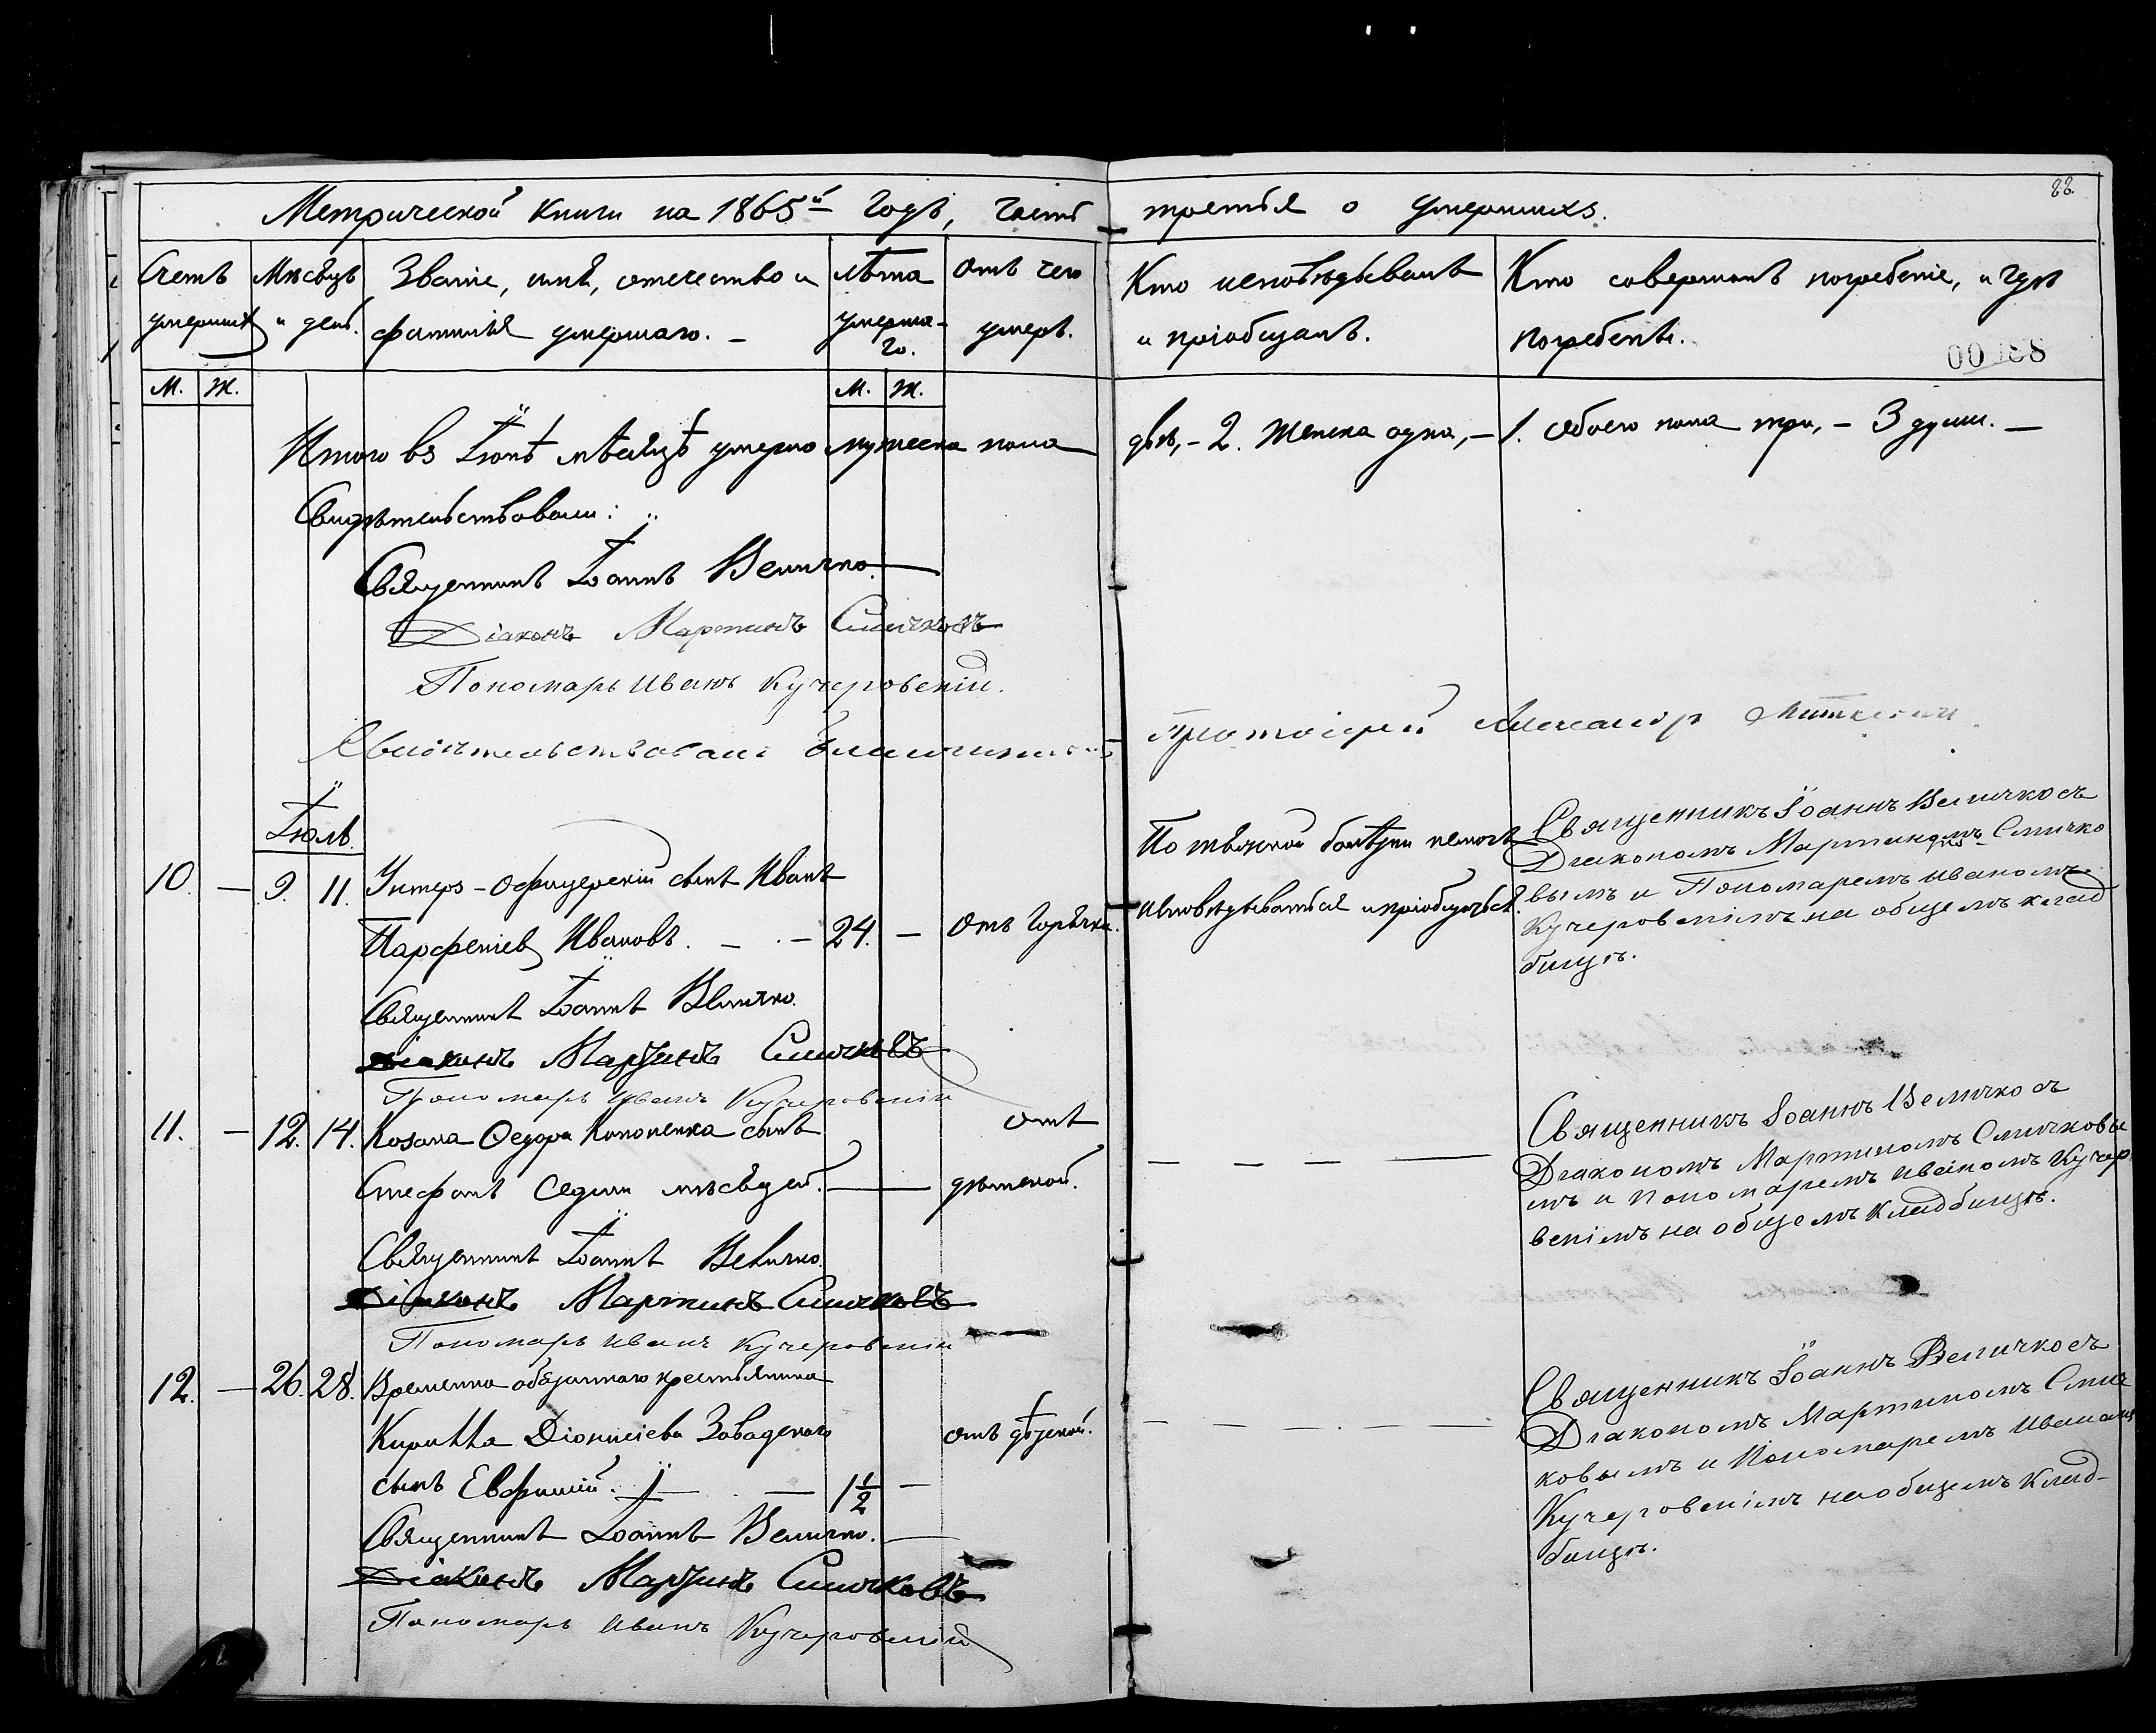 88.
Метрической Книги на 1865й Годъ, Часть третья о умершихъ.
Счетъ умершихъ
М. Ж.
Мѣсяцъ и день.
Званіе, имя, отечество и фамилія умершаго. –
Лѣта умерша-
го.
М. Ж.
Отъ чего умеръ.
Кто исповѣдывалъ и пріобщалъ.
Кто совершалъ погребеніе, и гдѣ погребенъ.
00188
Итого въ Іюнѣ мѣсяцѣ умерло мужеска пола двѣ, – 2. Женска одна, – 1. Обоего пола три, – 3 души. –
Свидѣтельствовали:
Священникъ Іоаннъ Величко.
Діаконъ Мартинъ Смичковъ
Пономарь Иванъ Кучеровскій.
Свидѣтельствовалъ Благочинный Протоіерей Александръ
Іюль.
10. – 9. 11. Унтеръ-офицерскій сынъ Иванъ
Парфеніевъ Ивановъ. – – 24. – Отъ Горячки.
По тяжкой болѣзни немогъ
исповѣдываться и пріобщаться.
Священникъ Іоаннъ Величко съ
Діакономъ Мартиномъ Смичко
вымъ и Пономаремъ Иваномъ
Кучеровскимъ на общемъ клад
бищѣ.
Священникъ Іоаннъ Величко.
Діаконъ Мартинъ Смичковъ
Пономарь Иванъ Кучеровскій
11. – 12. 14. Козака Федора Кононенка сынъ
Стефанъ Седьми мѣсяцей. – отъ дѣтской.
Священникъ Іоаннъ Величко съ
Діакономъ Мартиномъ Смичковы
мъ и Пономаремъ Иваномъ Кучеро
вскімъ на общемъ Кладбищѣ.
Священникъ Іоаннъ Величко.
Діаконъ Мартинъ Смичковъ
Пономарь Иванъ Кучеровскій
12. – 26. 28. Временно обязаннаго крестьянина
Кирилла Діонисіева Завадскаго
сынъ Евфимій. – – 1 1/2 – отъ дѣтской.
Священникъ Іоаннъ Величко съ
Діакономъ Мартиномъ Смич
ковымъ и Пономаремъ Иваномъ
Кучеровскімъ на общемъ Клад-
бищѣ.
Священникъ Іоаннъ Величко. –
Діаконъ Мартинъ Смичковъ
Пономарь Иванъ Кучеровскій